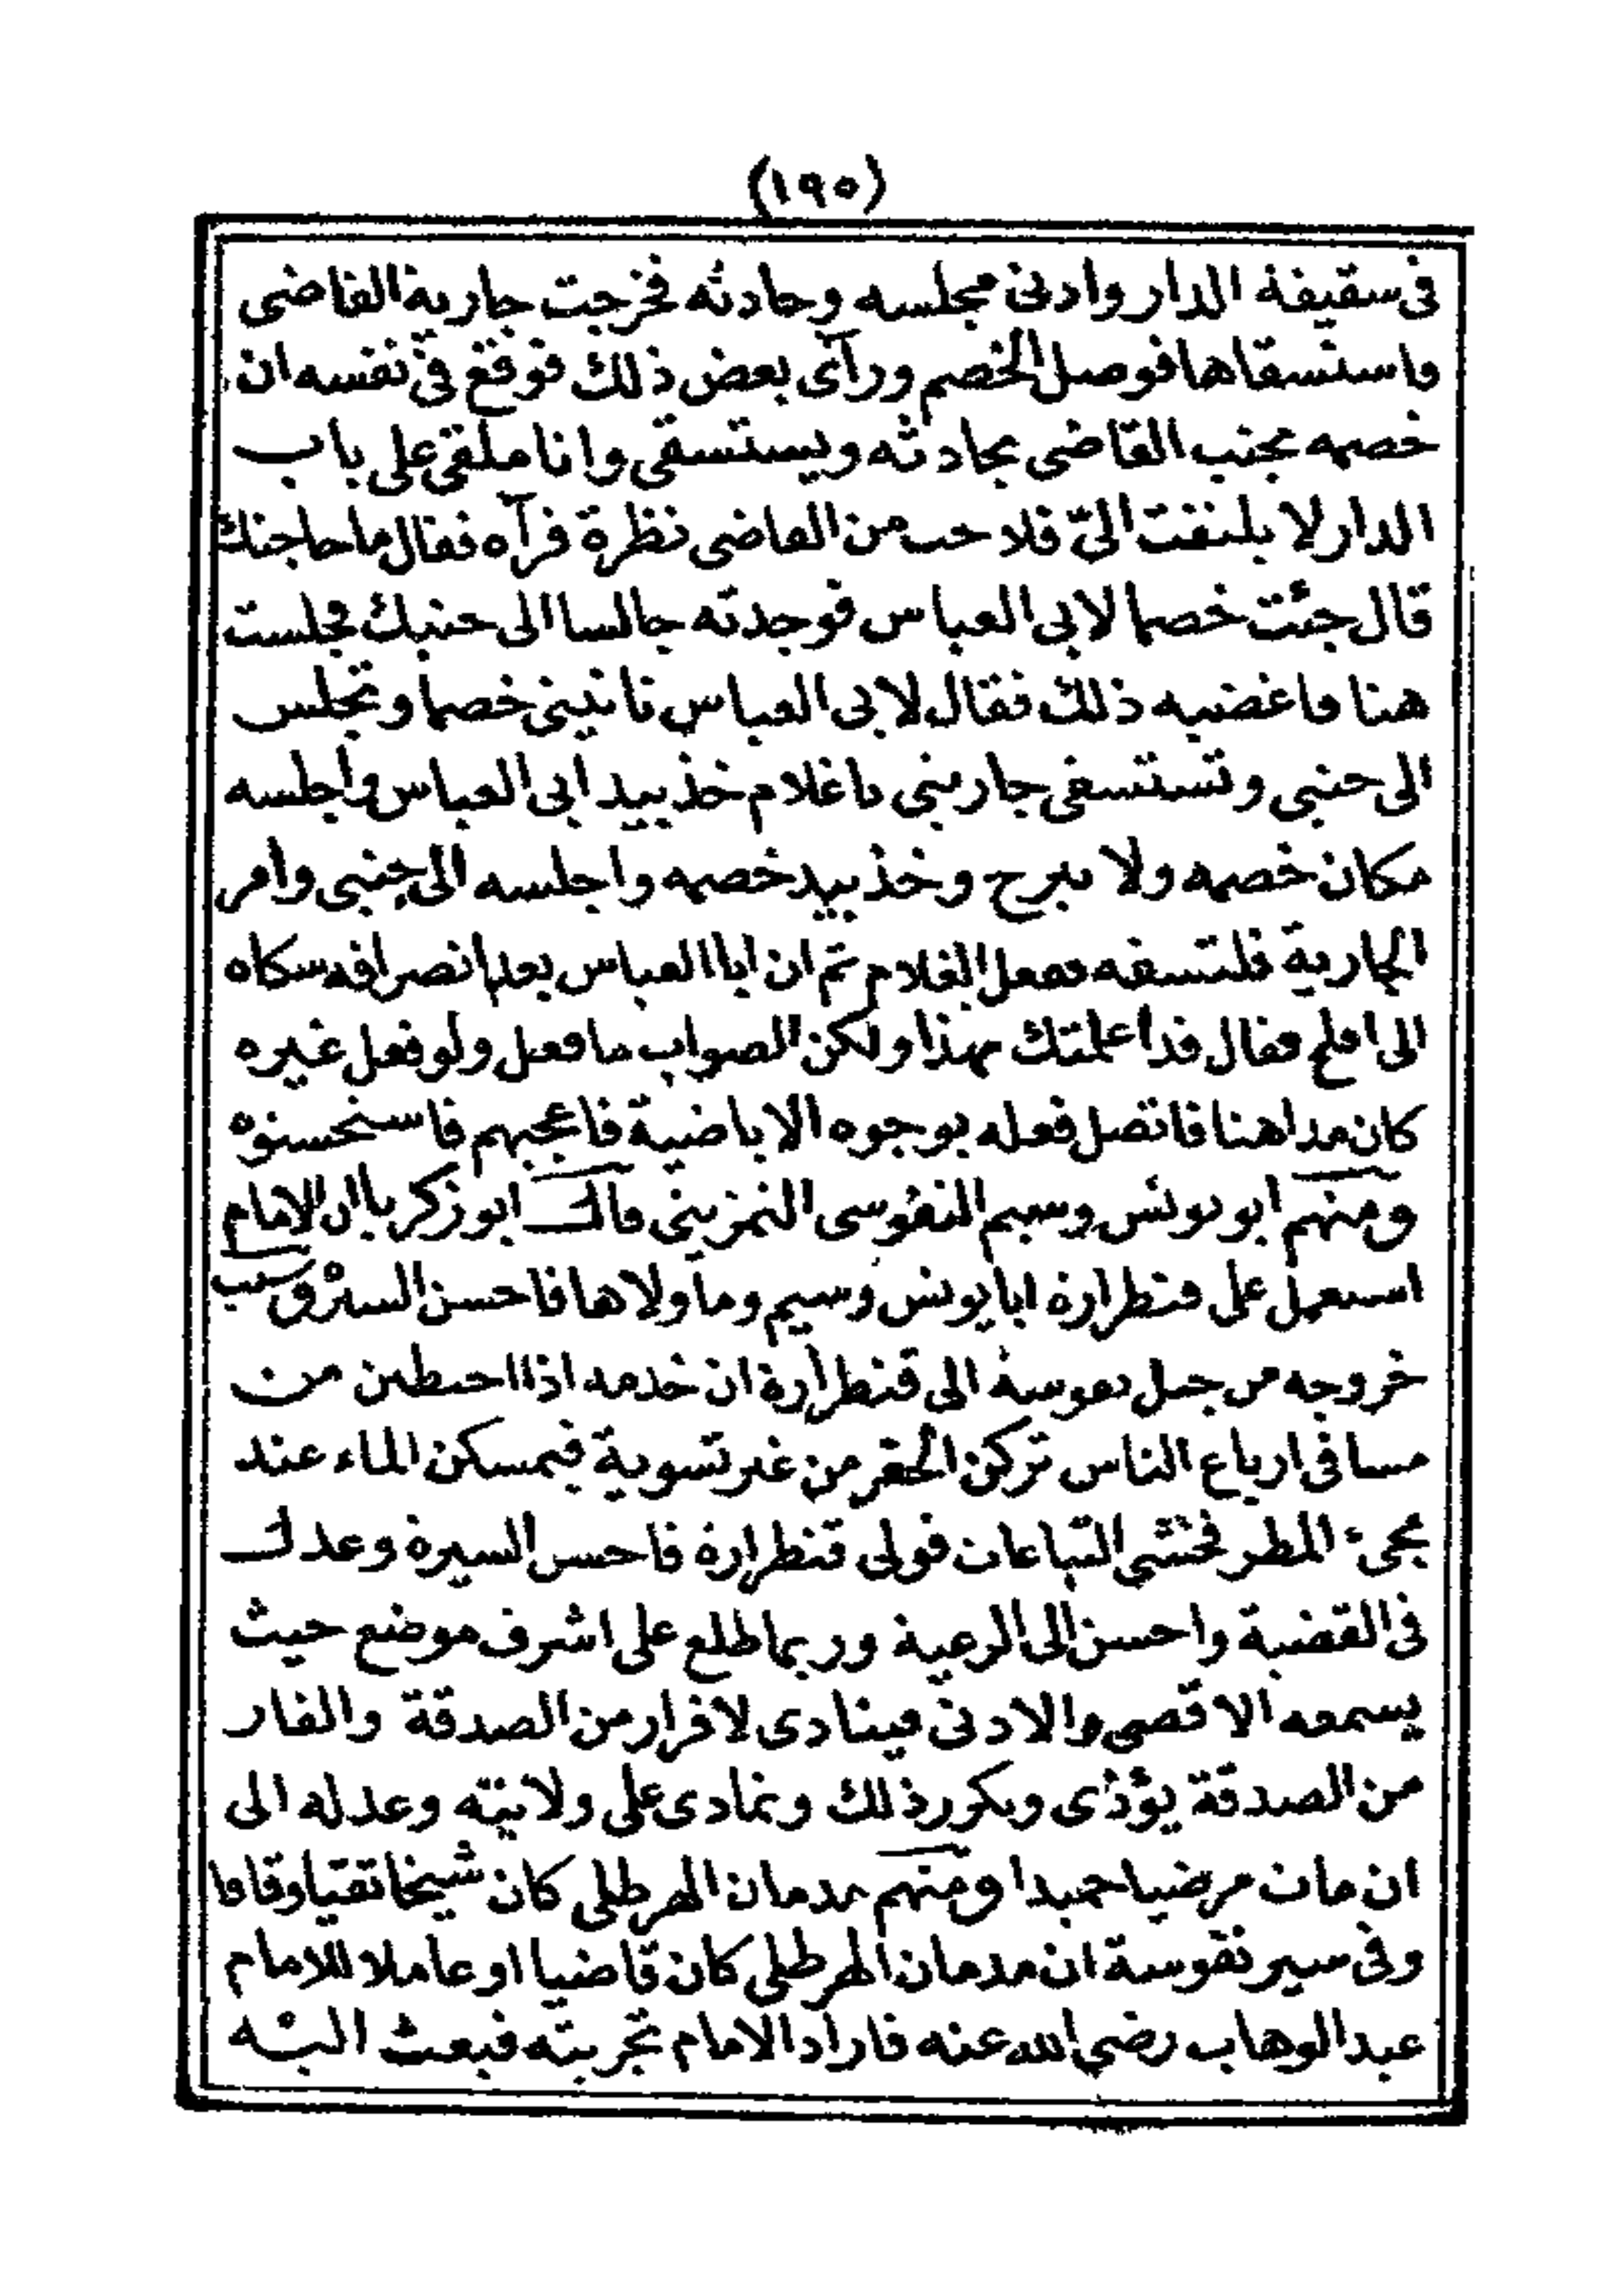 (١٩٥)
فى سقيفة الدار وادنى مجلسه وحادثه فخرجت جارية القاضى
واستسقاها فوصل الخصم ورآى بعض ذلك فوقع فى نفسه ان
خصمه بجنب القاضى يحادثه ويستسقى وانا ملقى على باب
الدار لا يلتفت الىّ فلاحت من القاضى نظرة فرآه فقال ما حاجتك
قال جئت خصما لابى العباس فوجدته جالسا الى جنبك فجلست
هنا فاغضبه ذلك فقال لابى العباس تاتينى خصما وتجلس
الى جنبى وتستسقى جاريتى يا غلام خذ بيد ابى العباس واجلسه
مكان خصمه ولا يبرح وخذ بيد خصمه واجلسه الى جنبى وأمر
الجارية فلتسقه ففعل الغلام ثم ان ابا العباس بعد انصرافه شكاه
الى افلح فقال قد اعلمتك بهذا ولكن الصواب ما فعل ولو فعل غيره
كان مداهنا فاتصل فعله بوجوه الاباضية فاعجبهم فاستحسنوه
ومنهم ابو يونس وسيم النفوسى التمزينى قال ابو زكريا ان الامام
استعمل على قنطرارة ابا يونس وسيم وما ولاها فاحسن السير وسبب
خروجه من جبل نفوسة الى قنطرارة ان خدمه اذا احتطبن من
مسافى ارباع الناس تركن الحفر من غير تسوية فيمسكن الماء عند
مجىء المطر فخشى التباعات فولى قنطرارة فاحسن السيرة وعدل
فى القضية واحسن الى الرعية وربما طلع على اشرف موضع حيث
يسمعه الاقصى والادنى فينادى لا فرار من الصدقة والفار
من الصدقة يؤذى ويكرر ذلك وتمادى على ولايته وعدله الى
ان مات مرضيا حميدا ومنهم مدمان الهرطلى كان شيخا تقيا وقافا
وفى سير نفوسة ان مدمان الهرطلى كان قاضيا او عاملا للامام
عبد الوهاب رضى الله عنه فاراد الامام تجربته فبعث اليه